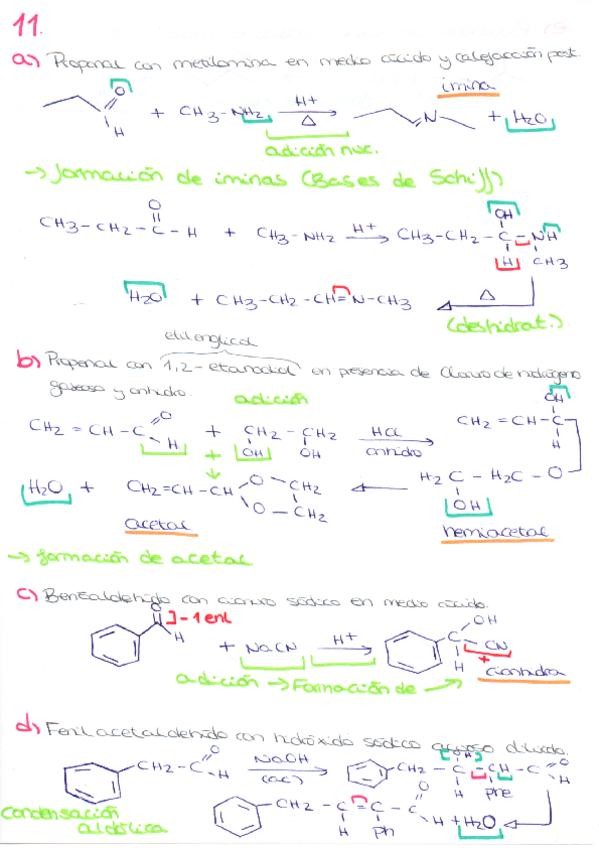 11.
a) Propanal con metilamina en medio ácido y calefacción post.
imina
O
H
+ CH3-NH2 H+ Δ N + H2O
adición nuc.
→ formación de iminas (Bases de Schiff)
O OH
CH3-CH2-C-H + CH3-NH2 H+ CH3-CH2-C-NH
H CH3
H2O + CH3-CH2-CH=N-CH3 Δ
(deshidrat.)
etilenglicol
b) Propenal con 1,2-etanodiol en presencia de cloruro de hidrógeno
gaseoso y anhidro.
adición
OH
CH2=CH-C O H + CH2-CH2 HCl CH2=CH-C
OH OH anhidro H
+
H2O + CH2=CH-CH O CH2 H2C-H2C-O
O-CH2 OH
acetal hemiacetal
→ formación de acetal
c) Benzaldehido con cianuro sódico en medio ácido.
O ]-1 enl OH
H + NaCN H+ C CN
H +
adición → Formación de cianhidra
d) Fenil acetaldehido con hidróxido sódico acuoso diluido.
CH2-C O H NaOH (ac) CH2-C-CH-C O H
OH H Phe
CH2-C=C-C O H + H2O
H Ph
condensación
aldólica